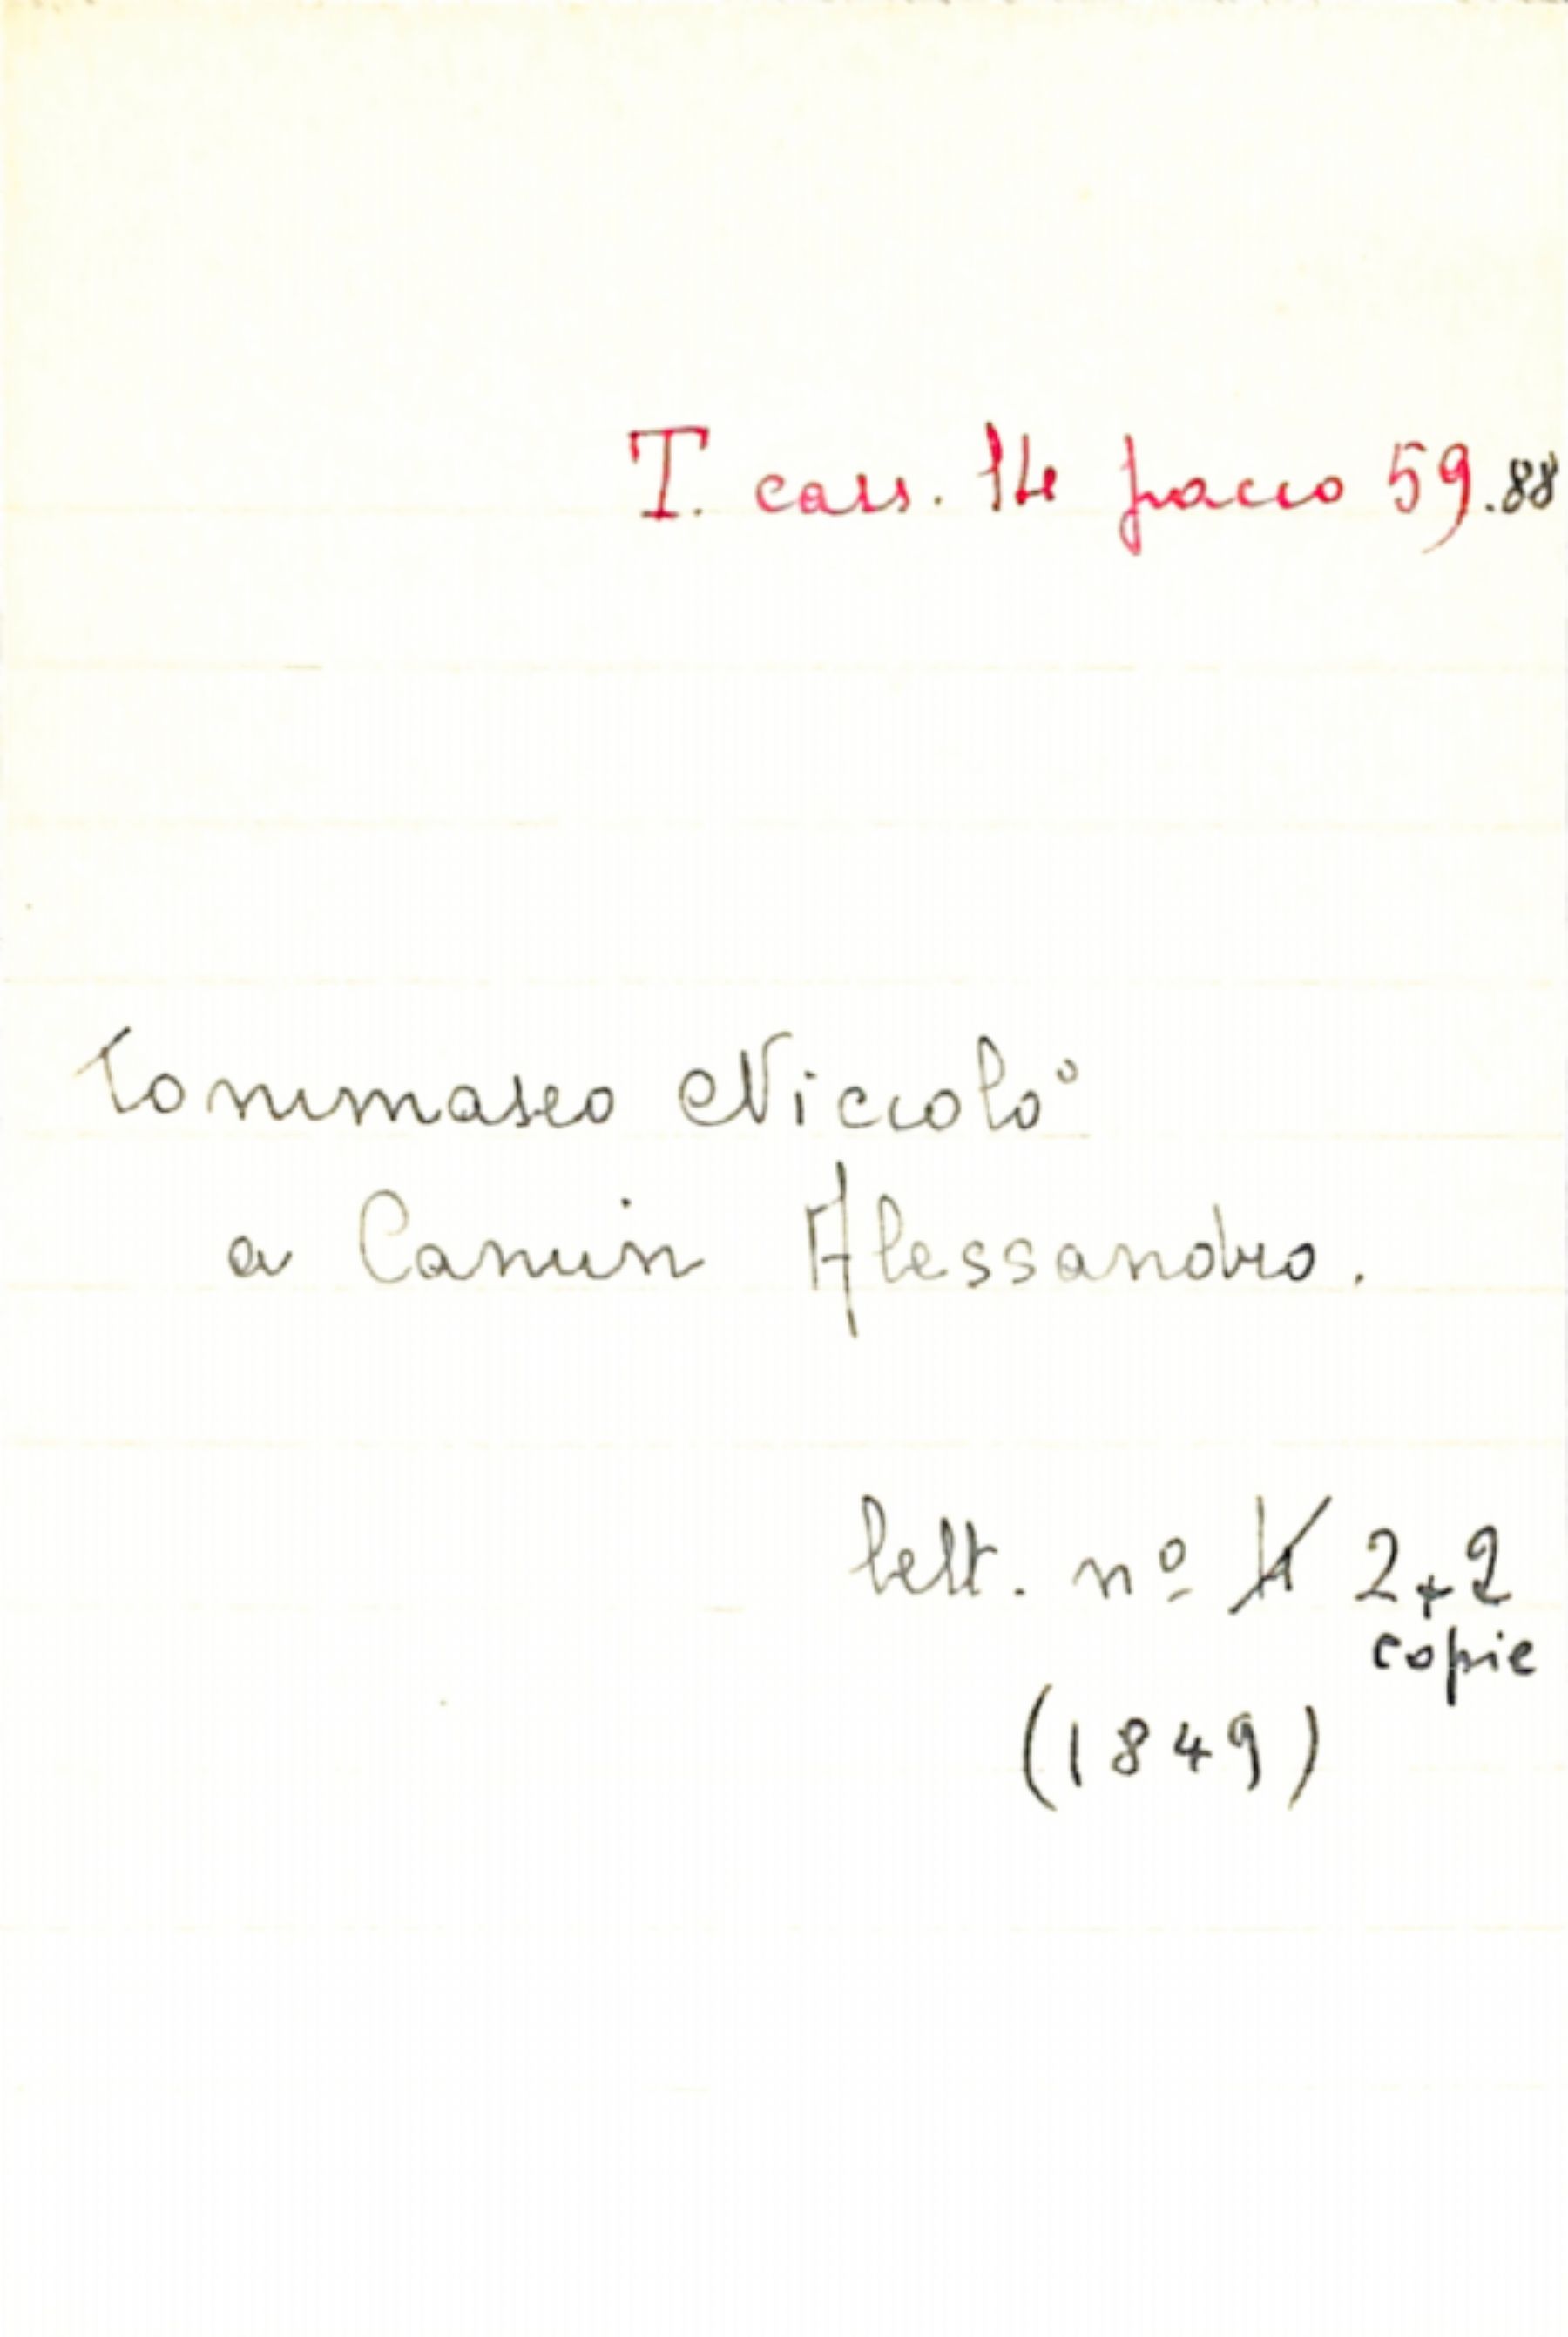 T. cass. 14 pacco 59.88
Tommaseo Niccolò
a Canin Alessandro.
lett. nº 4 2+2
copie
(1849)